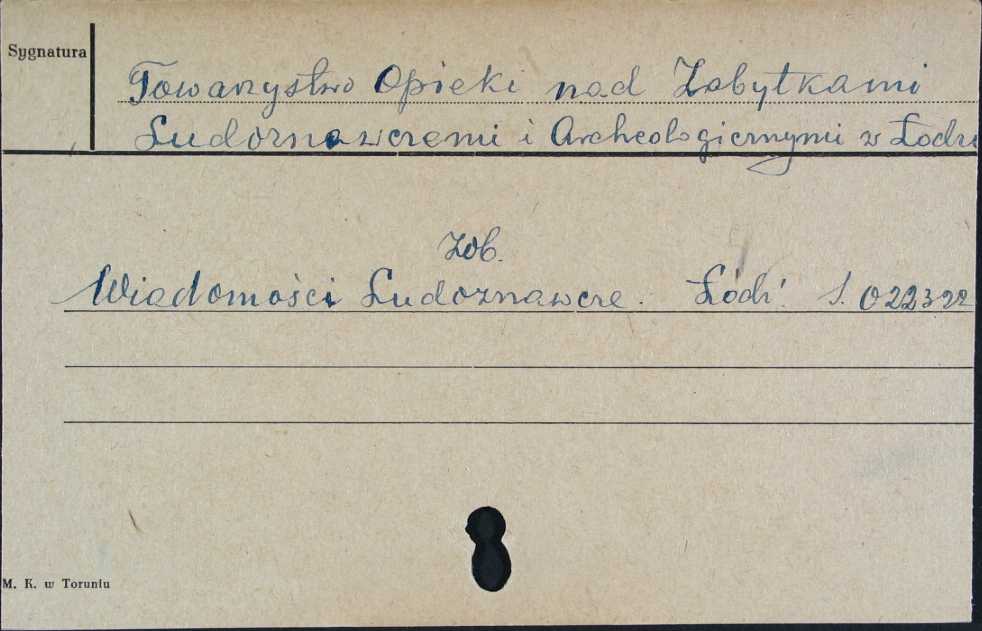 Sygnatura
Towarzystwo Opieki nad Zabytkami
Ludoznawczemi i Archeologicznymi w Łodzi
Zob.
Wiadomości Ludoznawcze. Łódź. S. 022322
M. K. w Toruniu